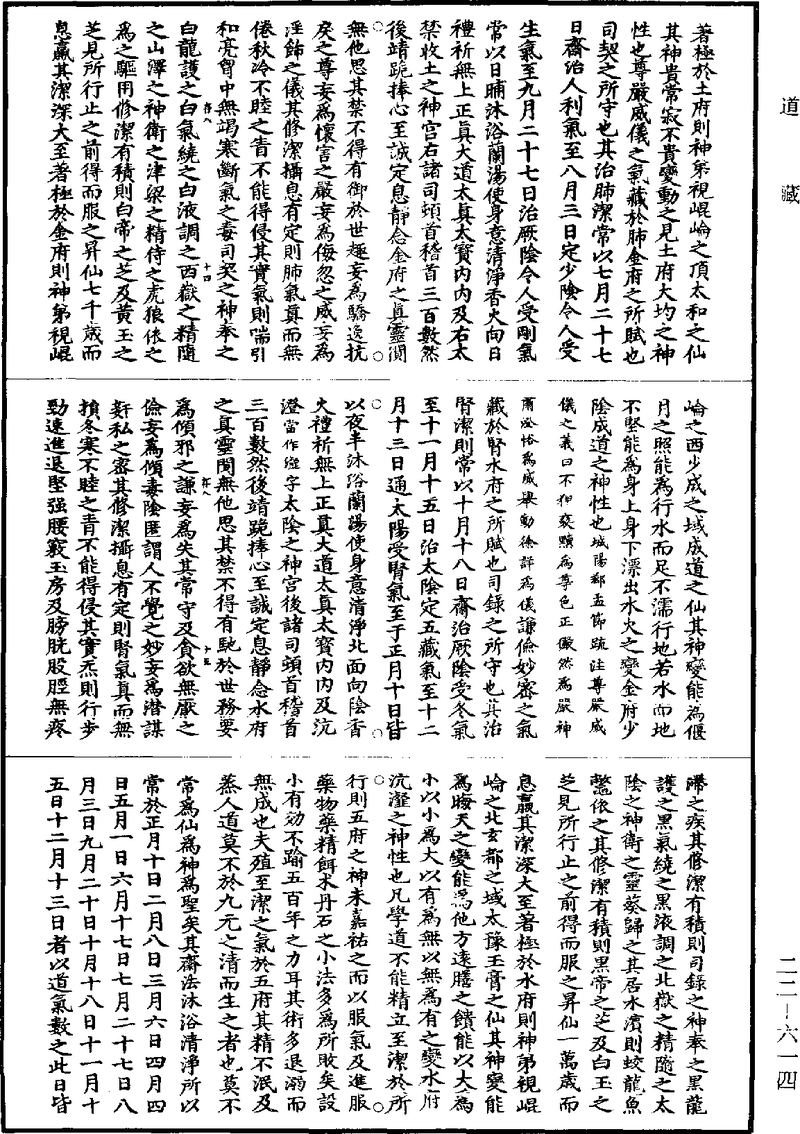 道藏
著極於土府則神第視崐崘之頂太和之仙
其神貴常寂不貴變動之見土府大均之神
性也尊嚴威儀之氣藏於肺金府之所賦也
司契之所守也其治肺潔常以七月二十七
日齋治人利氣至八月三日定少陰令人受
生氣至九月二十七日治厥陰令人受剛氣
常以日晡沐浴蘭湯使身意清淨香火向日
禮祈無上正真大道太真太寶内内及右太
禁收土之神宫右諸司頓首稽首三百數然
後靖跪捧心至誠定息靜念金府之真靈闃
無他思其禁不得有御於世趣妄為驕逸抗
戾之尊妄為懷害之嚴妄為侮忽之威妄為
淫飾之儀其修潔攝息有定則肺氣真而無
倦秋冷不睦之眚不能得侵其實氣則喘引
和亮胷中無竭寒斷氣之毒司契之神奉之
白龍護之白氣繞之白液調之西嶽之精隨
之山澤之神衛之津梁之精侍之虎狼依之
為之驅用修潔有積則白帝之芝及黄玉之
芝見所行止之前得而服之昇仙七千歲而
息羸其潔深大至著極於金府則神第視崐
崘之西少成之域成道之仙其神變能為偃
月之照能為行水而足不濡行地若水而地
不堅能為身上身下漂出水火之變金府少
陰成道之神性也城陽郄孟節䟽注尊嚴威
儀之義曰不狎褻黷為尊色正儼然為嚴神
肅㳄恪為威舉動徐詳為儀謙儉妙密之氣
藏於腎水府之所賦也司錄之所守也其治
腎潔則常以十月十八日齋治厥陰受冬氣
至十一月十五日治太陰定五藏氣至十二
月十三日通太陽受腎氣至于正月十日皆
以夜半沐浴蘭湯使身意清淨北面向陰香
火禮祈無上正真大道太真太寶内内及沆
澄當作瀣字太陰之神宫後諸司頓首稽首
三百數然後靖跪捧心至誠定息靜念水府
之真靈闃無他思其禁不得有馳於世務要
為傾邪之謙妄為失其常守及貪欲無厭之
儉妄為傾毒陰匿謂人不覺之妙妄為潜謀
姧私之密其修潔攝息有定則腎氣真而無
損冬寒不睦之眚不能得侵其實炁則行步
勁速進退堅强腰竅玉房及膀胱股脛無疼
滯之疾其修潔有積則司錄之神奉之黑龍
護之黑氣繞之黑液調之北嶽之精隨之太
陰之神衛之靈葵歸之其居水濱則蛟龍魚
鼈依之其修潔有積則黑帝之芝及白玉之
芝見所行止之前得而服之昇仙一萬歲而
息羸其潔深大至著極於水府則神第視崐
崘之北玄都之域太豫玉膏之仙其神變能
為晦天之變能為他方逺膳之饋能以大為
小以小為大以有為無以無為有之變水府
沆瀣之神性也凡學道不能精立至潔於所
行則五府之神未嘉祐之而以服氣及進服
藥物藥精餌术丹石之小法多為所敗矣設
小有効不踰五百年之力耳其術多退溺而
無成也夫殖至潔之氣於五府其精不泯及
蒸人道莫不於九元之清而生之者也莫不
常為仙為神為聖矣其齋法沐浴清淨所以
常於正月十日二月八日三月六日四月四
日五月一日六月十七日七月二十七日八
月三日九月二十日十月十八日十一月十
五日十二月十三日者以道氣數之此日皆
二二－六一四